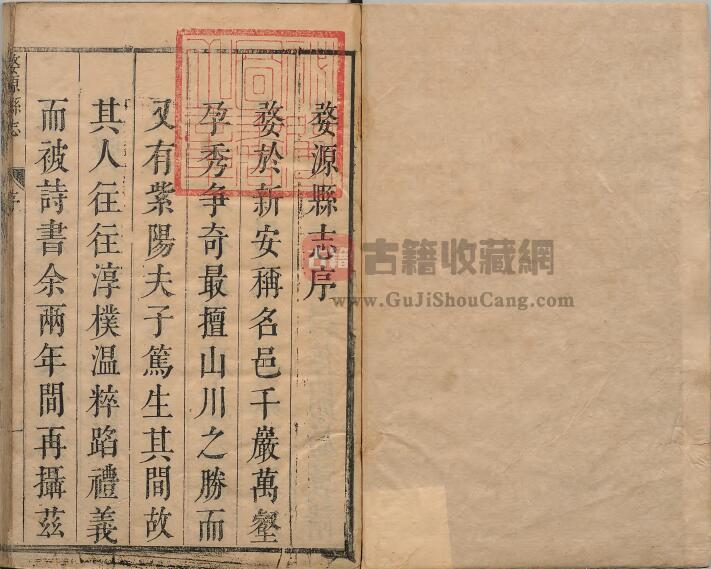 婺源縣志序
婺於新安稱名邑千巖萬壑
孕秀爭奇最擅山川之勝而
又有紫陽夫子篤生其間故
其人往往淳樸溫粹蹈禮義
而被詩書余兩年間再攝茲
婺源縣志
序
古籍
古籍收藏網
www.GuJiShouCang.com